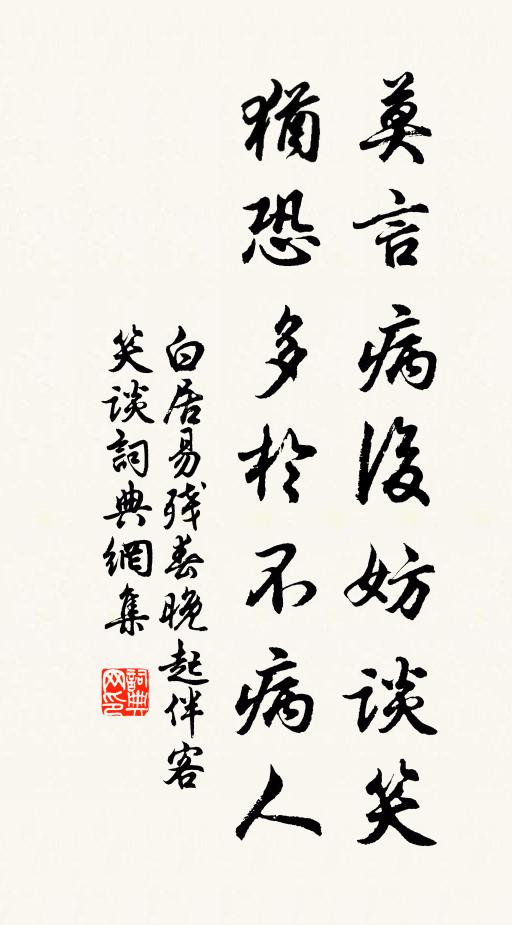 莫言病後妨談笑
猶恐多於不病人
白居易残春晚起伴客
笑談詞典網集
詞典
网印